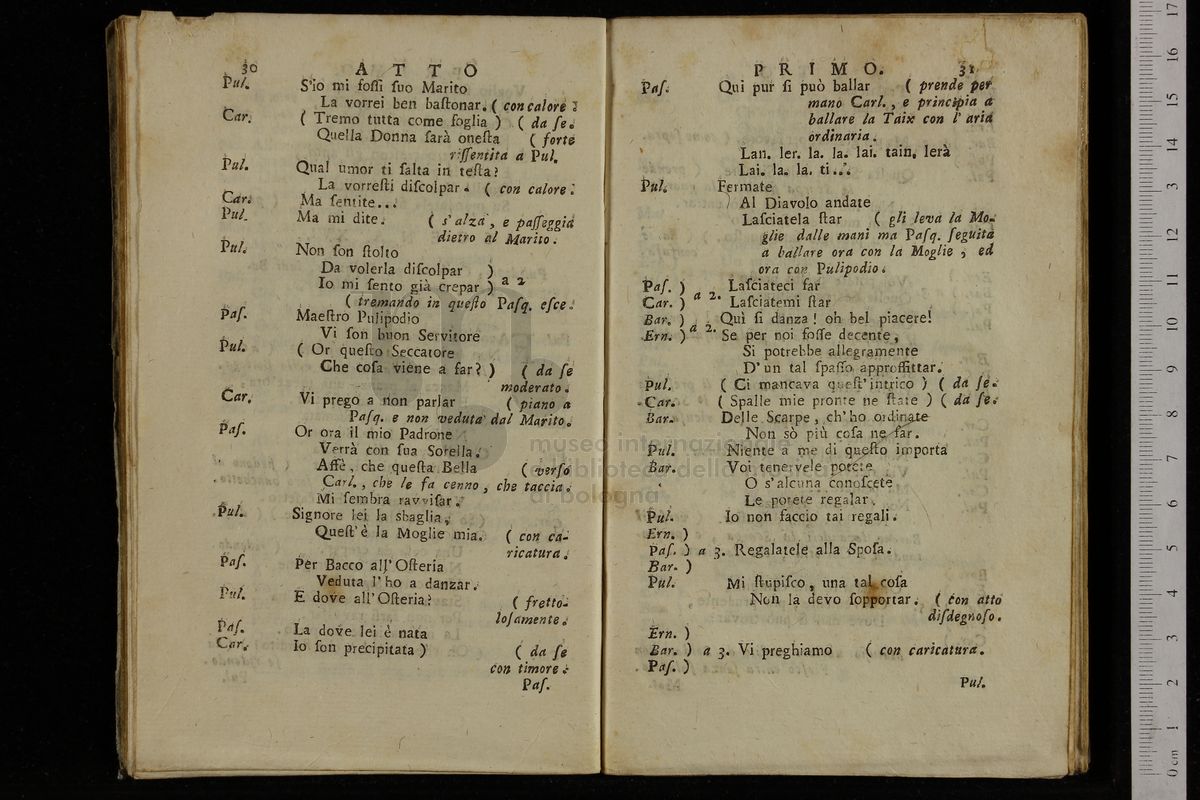 30 ATTO
Pul. S'io mi foſſi ſuo Marito
La vorrei ben baſtonar. ( con calore :
Car. ( Tremo tutta come foglia ) ( da ſe.
Quella Donna ſarà oneſta ( forte
riſſentita a Pul.
Pul. Qual umor ti ſalta in teſta?
La vorreſti diſcolpar. ( con calore.
Car. Ma ſentite...
Pul. Ma mi dite. ( s'alza, e paſſeggia
dietro al Marito.
Pul. Non ſon ſtolto
Da volerla diſcolpar )
Io mi ſento già crepar ) a 2
( tremando in queſto Paſq. eſce.
Paſ. Maeſtro Pulipodio
Vi ſon buon Servitore
Pul. ( Or queſto Seccatore
Che coſa viene a far? ) ( da ſe
moderato.
Car. Vi prego a non parlar ( piano a
Paſq. e non veduta dal Marito.
Paſ. Or ora il mio Padrone
Verrà con ſua Sorella.
Affè, che queſta Bella ( verſo
Carl., che le fa cenno, che taccia.
Mi ſembra ravviſar.
Pul. Signore lei la sbaglia,
Queſt'è la Moglie mia. ( con ca-
ricatura.
Paſ. Per Bacco all'Oſteria
Veduta l'ho a danzar.
Pul. E dove all'Oſteria? ( fretto-
loſamente.
Paſ. La dove lei è nata
Car. Io ſon precipitata ) ( da ſe
con timore.
Paſ.
PRIMO. 31
Paſ. Qui pur ſi può ballar ( prende per
mano Carl., e principia a
ballare la Taix con l'aria
ordinaria.
Lan. ler. la. la. lai. tain. lerà
Lai. la. la. ti...
Pul. Fermate
Al Diavolo andate
Laſciatela ſtar ( gli leva la Mo-
glie dalle mani ma Paſq. ſeguita
a ballare ora con la Moglie, ed
ora con Pulipodio.
Paſ. ) Laſciateci far
Car. ) a 2. Laſciatemi ſtar
Bar. ) Quì ſi danza! oh bel piacere!
Ern. ) a 2. Se per noi foſſe decente,
Si potrebbe allegramente
D'un tal ſpaſſo approffittar.
Pul. ( Ci mancava queſt'intrico ) ( da ſe.
Car. ( Spalle mie pronte ne ſtate ) ( da ſe.
Bar. Delle Scarpe, ch'ho ordinate
Non sò più coſa ne far.
Pul. Niente a me di queſto importa
Bar. Voi tenervele potete
O s'alcuna conoſcete
Le potete regalar.
Pul. Io non faccio tai regali.
Ern. )
Paſ. ) a 3. Regalatele alla Spoſa.
Bar. )
Pul. Mi ſtupiſco, una tal coſa
Non la devo ſopportar. ( con atto
diſdegnoſo.
Ern. )
Bar. ) a 3. Vi preghiamo ( con caricatura.
Paſ. )
Pul.
museo internazionale
e biblioteca della musica
di bologna
0 cm 1 2 3 4 5 6 7 8 9 10 11 12 13 14 15 16 17